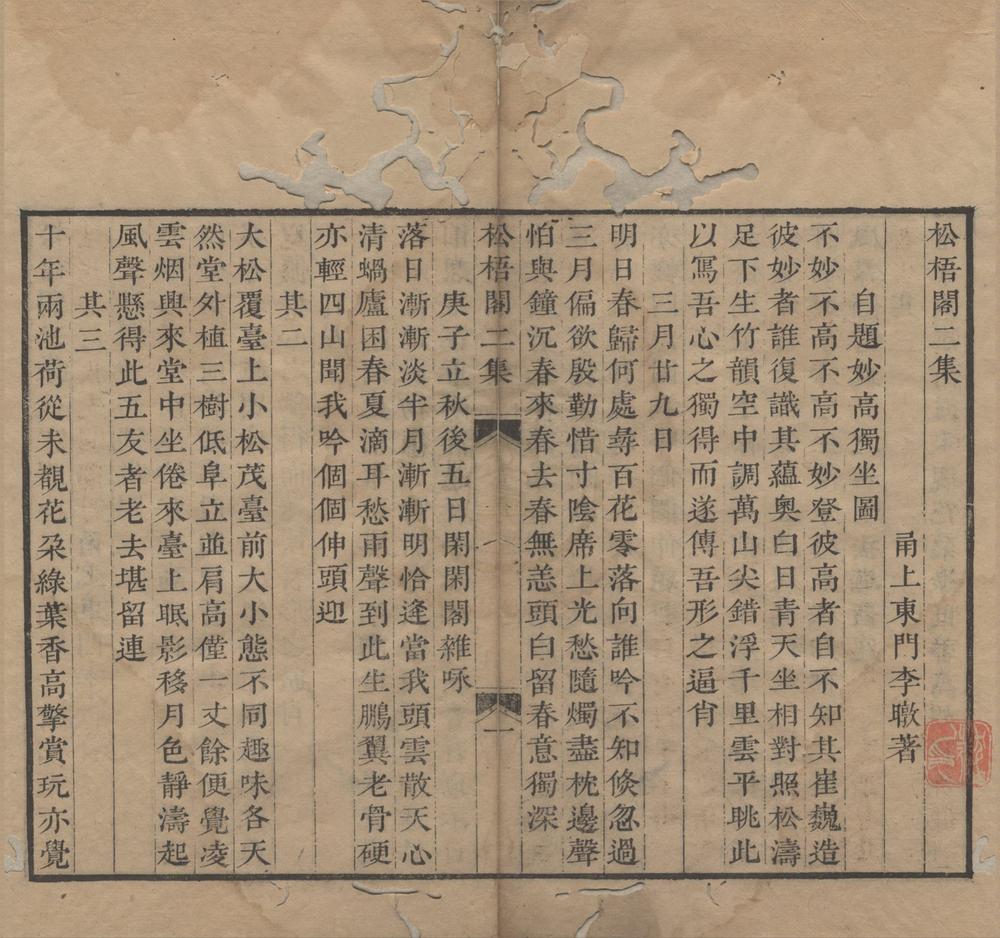 松梧閣二集
甬上東門李暾著
自題妙高獨坐圖
不妙不高不高不妙登彼高者自不知其崔巍造
彼妙者誰復識其蘊奧白日青天坐相對照松濤
足下生竹韻空中調萬山尖錯浮千里雲平眺此
以寫吾心之獨得而遂傳吾形之逼肖
三月廿九日
明日春歸何處尋百花零落向誰吟不知倏忽過
三月偏欲殷勤惜寸陰席上光愁隨燭盡枕邊聲
怕與鐘沉春來春去春無恙頭白留春意獨深
松梧閣二集
一
庚子立秋後五日閑閑閣雜咏
落日漸漸淡半月漸漸明恰逢當我頭雲散天心
清蝸廬困春夏滴耳愁雨聲到此生鵬翼老骨硬
亦輕四山聞我吟個個伸頭迎
其二
大松覆臺上小松茂臺前大小態不同趣味各天
然堂外植三樹低阜立並肩高僅一丈餘便覺凌
雲烟興來堂中坐倦來臺上眠影移月色靜濤起
風聲懸得此五友者老去堪留連
其三
十年兩池荷從未覩花朶綠葉香高擎賞玩亦覺